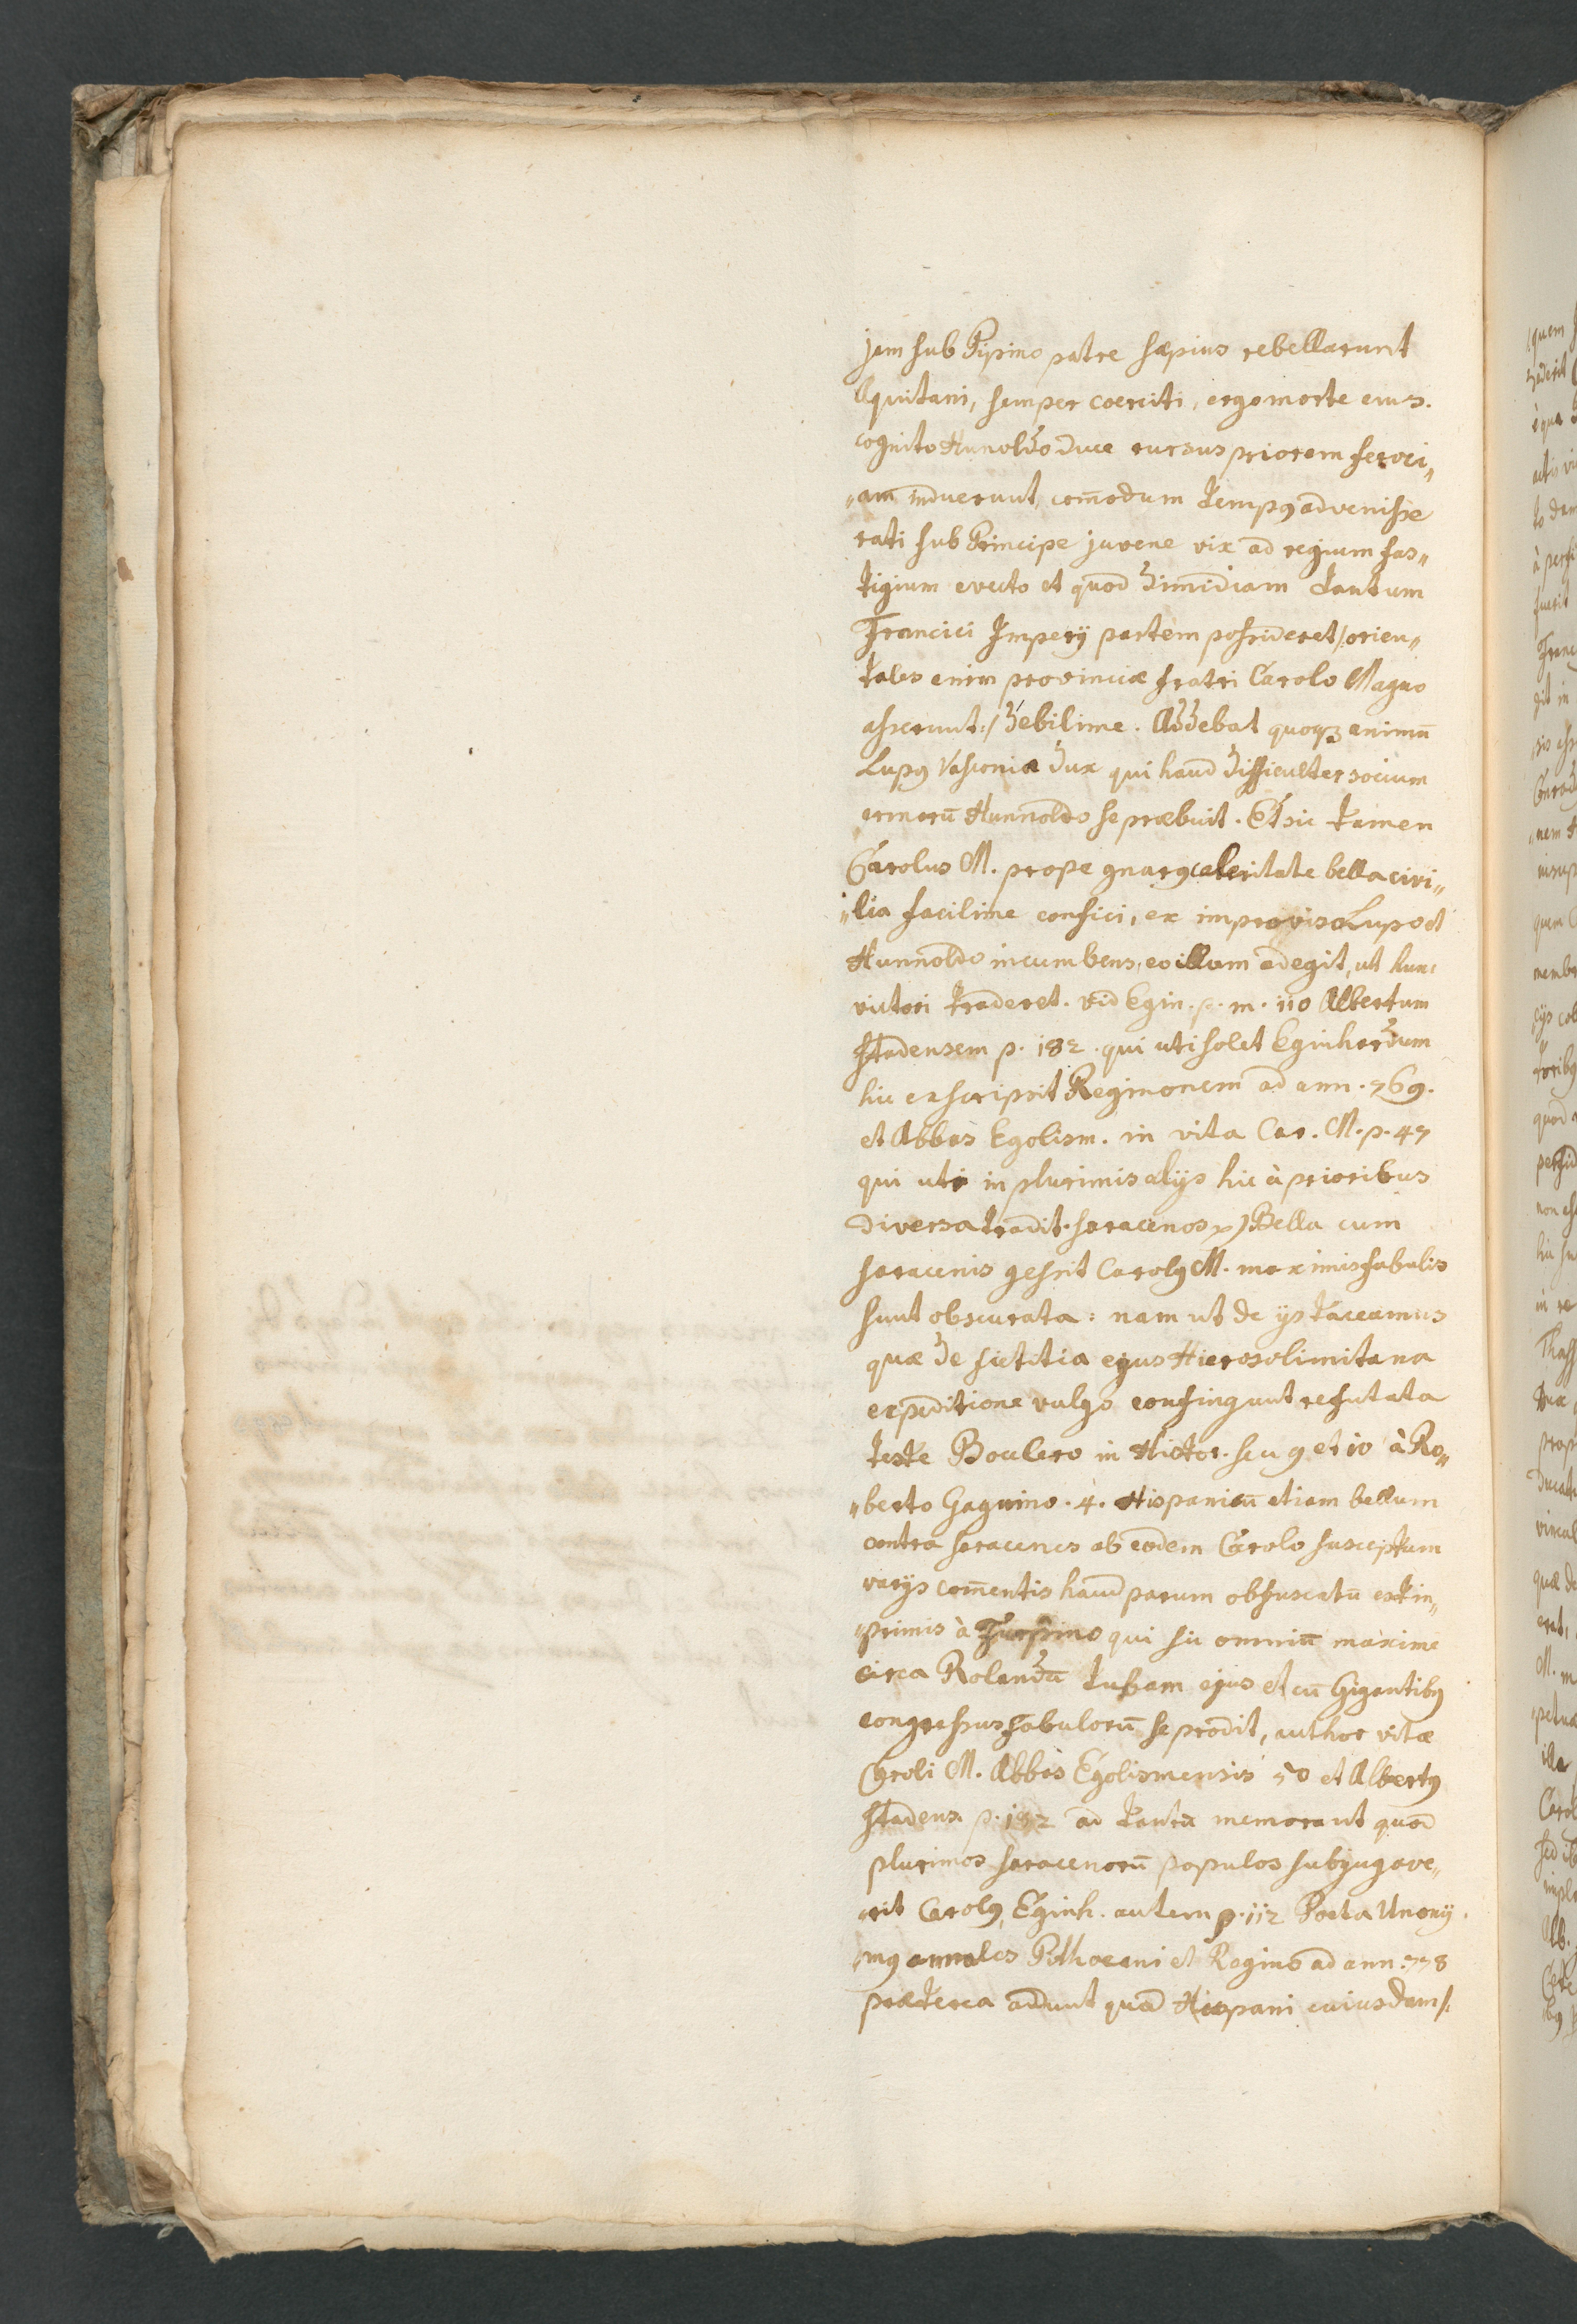 jam sub Pipino patre sæpius rebellarunt
Aquitani, semper coerciti, ergo morte eius
cognito Hunoldo duce rursus priorem feroci„
„am induerunt, com̄odum tempꝰ advenisse
rati sub Principe juvene vix ad regium fas„
tigium evecto et quod dimidiam tantum
Francici Imperij partem possideret /: orien„
tales enim provinciæ fratri Carolo Magno
:/ debilime. Addebat quoqꝫ animū
Lupꝰ Vasconiæ dux qui haud difficulter socium
armorū Hunnoldo se præbuit. Et sic tamen
Carolus M. prope gnarꝰ celeritate bella civi„
„lia facilime confici, ex improviso Lupo et
Hunnoldo incumbens, eo illum adegit, ut hun:
victori traderet. vid Egin. p. m. 110 Albertum
Stadensem p. 182. qui uti solet Eginhardum
hic exscripsit Reginonem ad ann. 769.
et Abbas Egolism. in vita Car. M. p. 47
qui uti in plurimis alijs hic à prioribus
diversa tradit. Saracenos) Bella cum
Saracenis gessit Carolꝰ M. maximis fabulis
sunt obscurata: nam ut de ijs taceamus
quæ de fictitia ejus Hierosolimitana
expeditione vulgo confingunt refutata
teste Boclero in Histor. Seu 9 et 10 à Ro„
„berto Gaguino. 4. Hispanicū etiam bellum
contra Saracenos ab eodem Carolo susceptum
varijs com̄entis haud parum obfuscatū est in„
„primis à Turpino qui sic omniū maxime
circa Rolandū tubam ejus et cū Gigantibꝰ
congressus fabulorū se prodit, author vitæ
Caroli M. Abbas Egolismensis 50 et Albertꝰ
Stadens. p. 182 ad tanta memorant quod
plurimos Saracenorū populos subjugave„
„rit Carolꝰ, Eginh. autem p. 112 Poeta Anony
„mꝰ annales Pithoeani et Regino ad ann. 778
præterea addunt quod Hispani cuiusdam /: